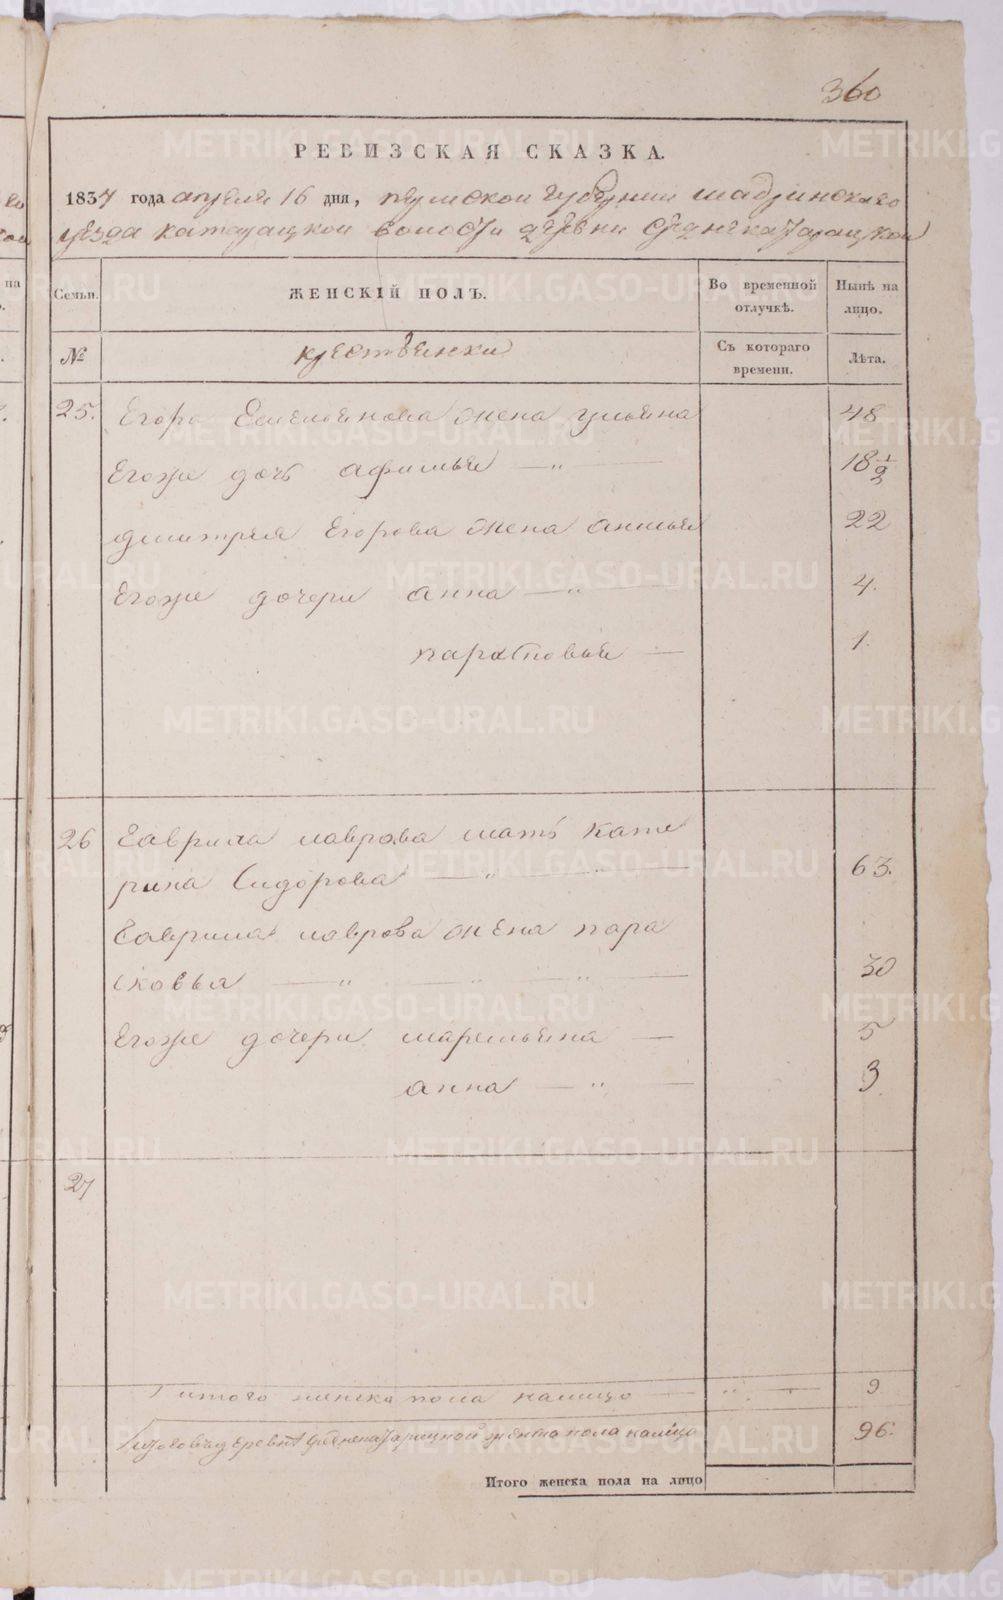 360
РЕВИЗСКАЯ СКАЗКА.
1837 года апреля 16 дня, пермской губернии шадринского
уезда катайцкой волости деревни
Семьи. ЖЕНСКІЙ ПОЛЪ. Во временной отлучкѣ. Нынѣ на лицо.
№ крестьянки Съ котораго времени. Лѣта.
25. Егора Емельянова жена ульяна 48
Егоже дочь афимья — „ — 18 1/2
дмитрия Егорова жена анисья 22
Егоже дочери анна — „ — 4.
парасковья — 1.
26 Гаврила лаврова мать кате
рина Сидорова — „ — „ — 63.
Гаврила лаврова жена пара
сковья — „ — „ — „ — 30
Егоже дочери маремьяна — 5
анна — „ — 3
27
итого женска пола налицо — „ — 9
женска пола налицо 96.
Итого женска пола на лицо
METRIKI.GASO-URAL.RU